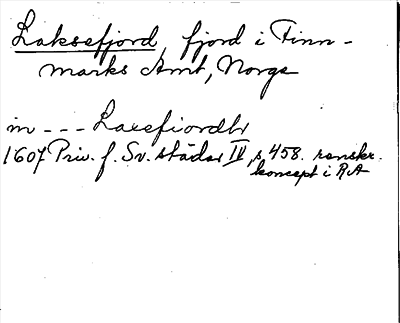 Laksefjord, fjord i Finn-
marks Amt, Norge
m --- Laxefiordtr
1607 Priv. f. Sv. städer IV, s. 458. renskr.
koncept i RA